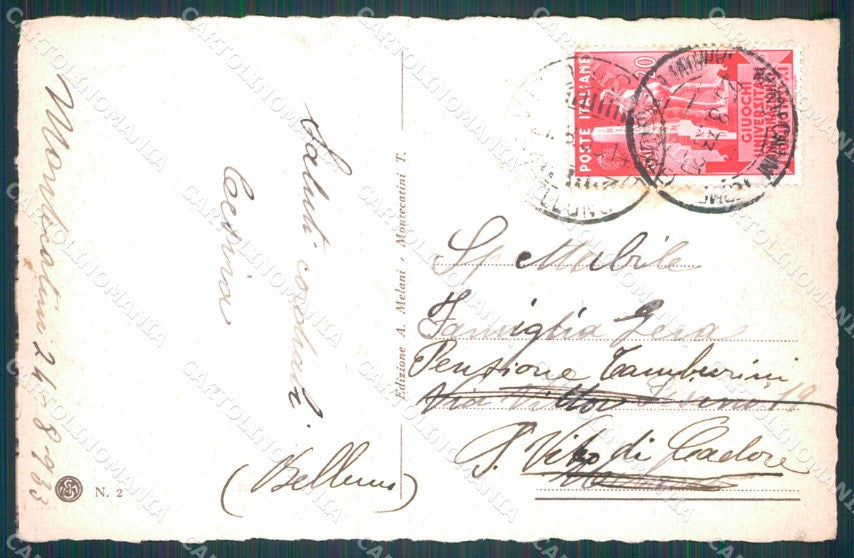 Montecatini 24-8-933
Saluti cordiali
Edizione A. Melani, Montecatini T.
N. 2
POSTE ITALIANE
20
GIUOCHI
UNIVERSITARI
Spettabile
Famiglia Gera
Pensione Tamburini
Via Vittor Pisani 19
S. Vito di Cadore
(Belluno)
CARTOLINOMANIA